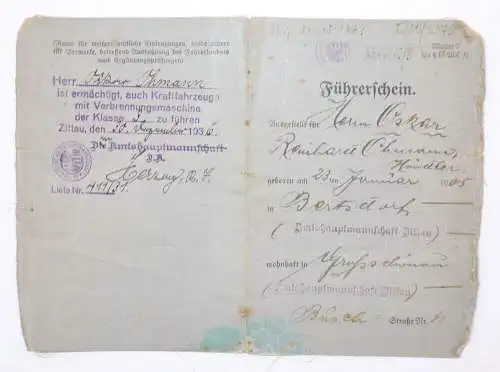 (Raum für weitere amtliche Eintragungen, insbesondere
für Vermerke, betreffend Ausdehnung des Führerscheins
und Ergänzungsprüfungen)
Herr Oskar Ohmann
ist ermächtigt, auch Kraftfahrzeuge
mit Verbrennungsmaschine
der Klasse 3 zu führen
Zittau, den 30. Dezember 193
Die Amtshauptmannschaft
J.A.
Herzog
Liste Nr. 411/31.
Führerschein.
Ausgestellt für Herrn Oskar
Reinhard Ohmann,
Händler,
geboren am 23 ten Januar 1905
in Bertsdorf
(Amtshauptmannschaft Zittau)
wohnhaft in Großschönau
(Amtshauptmannschaft Zittau)
Busch- Straße Nr.